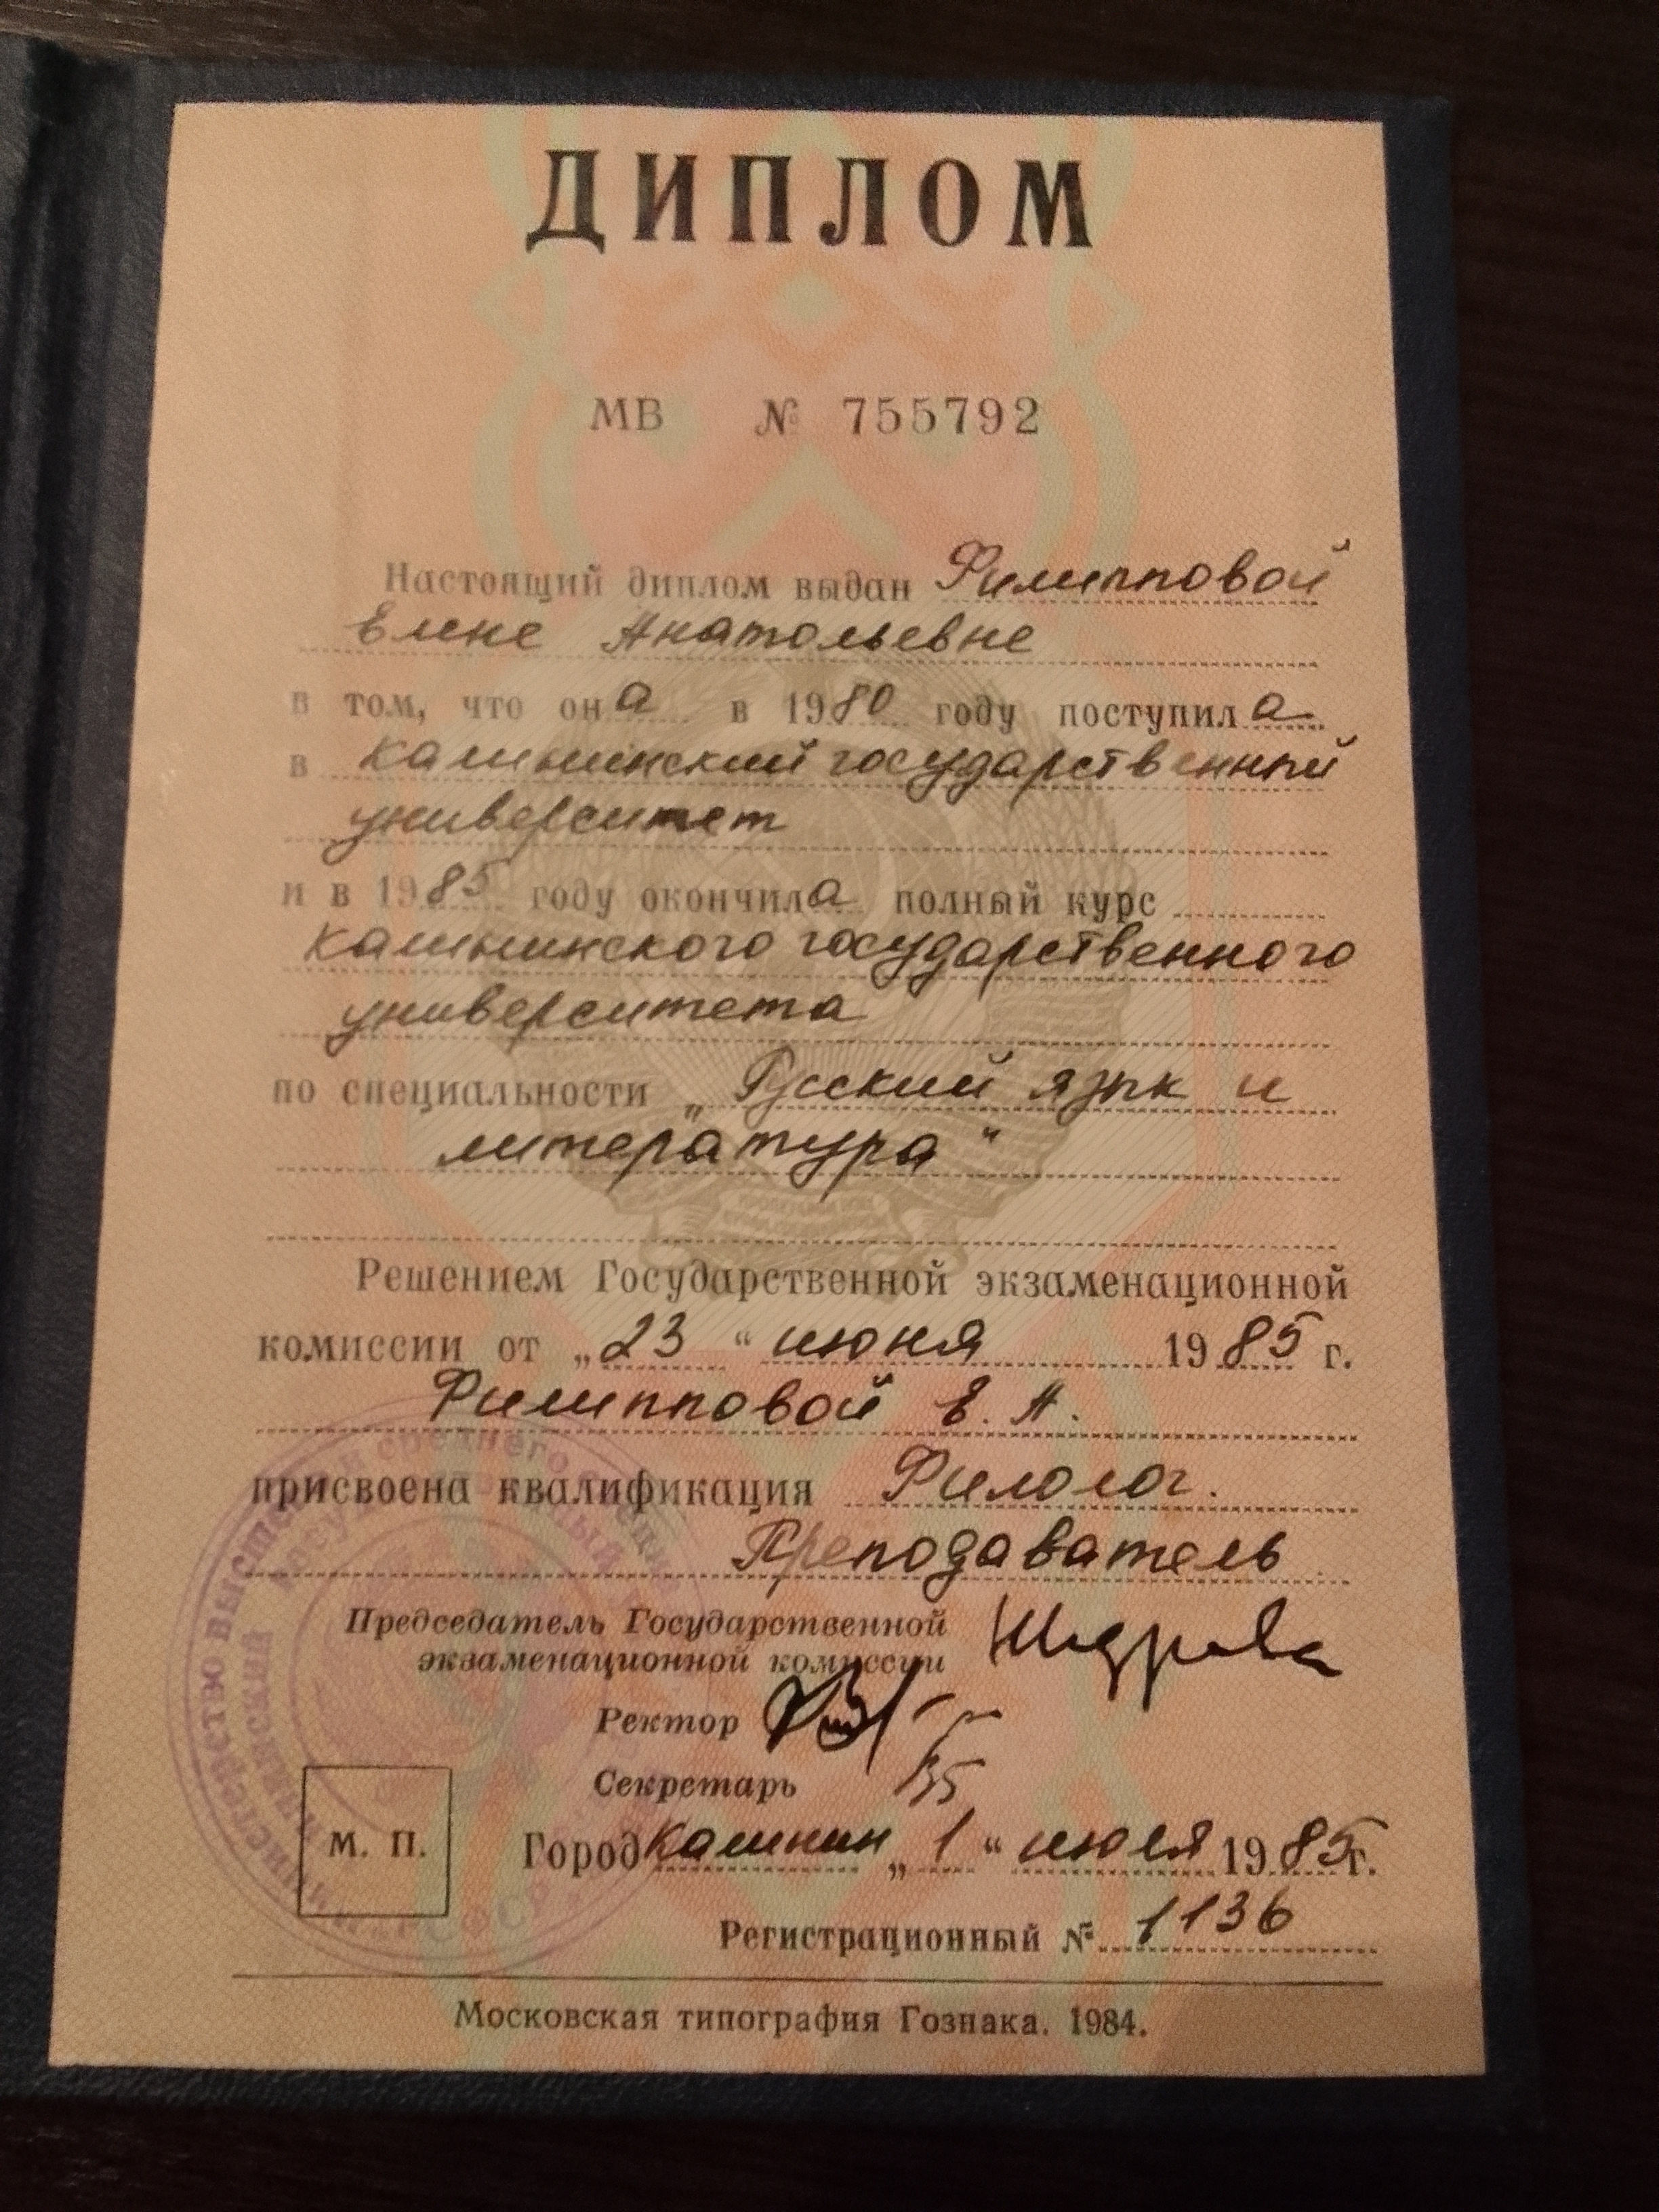 ДИПЛОМ
МВ № 755792
Настоящий диплом выдан Филипповой
Елене Анатольевне
в том, что она в 1980 году поступила
в Калининский государственный
университет
и в 1985 году окончила полный курс
Калининского государственного
университета
по специальности „Русский язык и
литература“
Решением Государственной экзаменационной
комиссии от „23“ июня 1985 г.
Филипповой Е. А.
присвоена квалификация Филолог.
Преподаватель
Председатель Государственной
экзаменационной комиссии
Ректор
Секретарь
М. П.
Город Калинин „1“ июля 1985г.
Регистрационный № 1136
Московская типография Гознака. 1984.